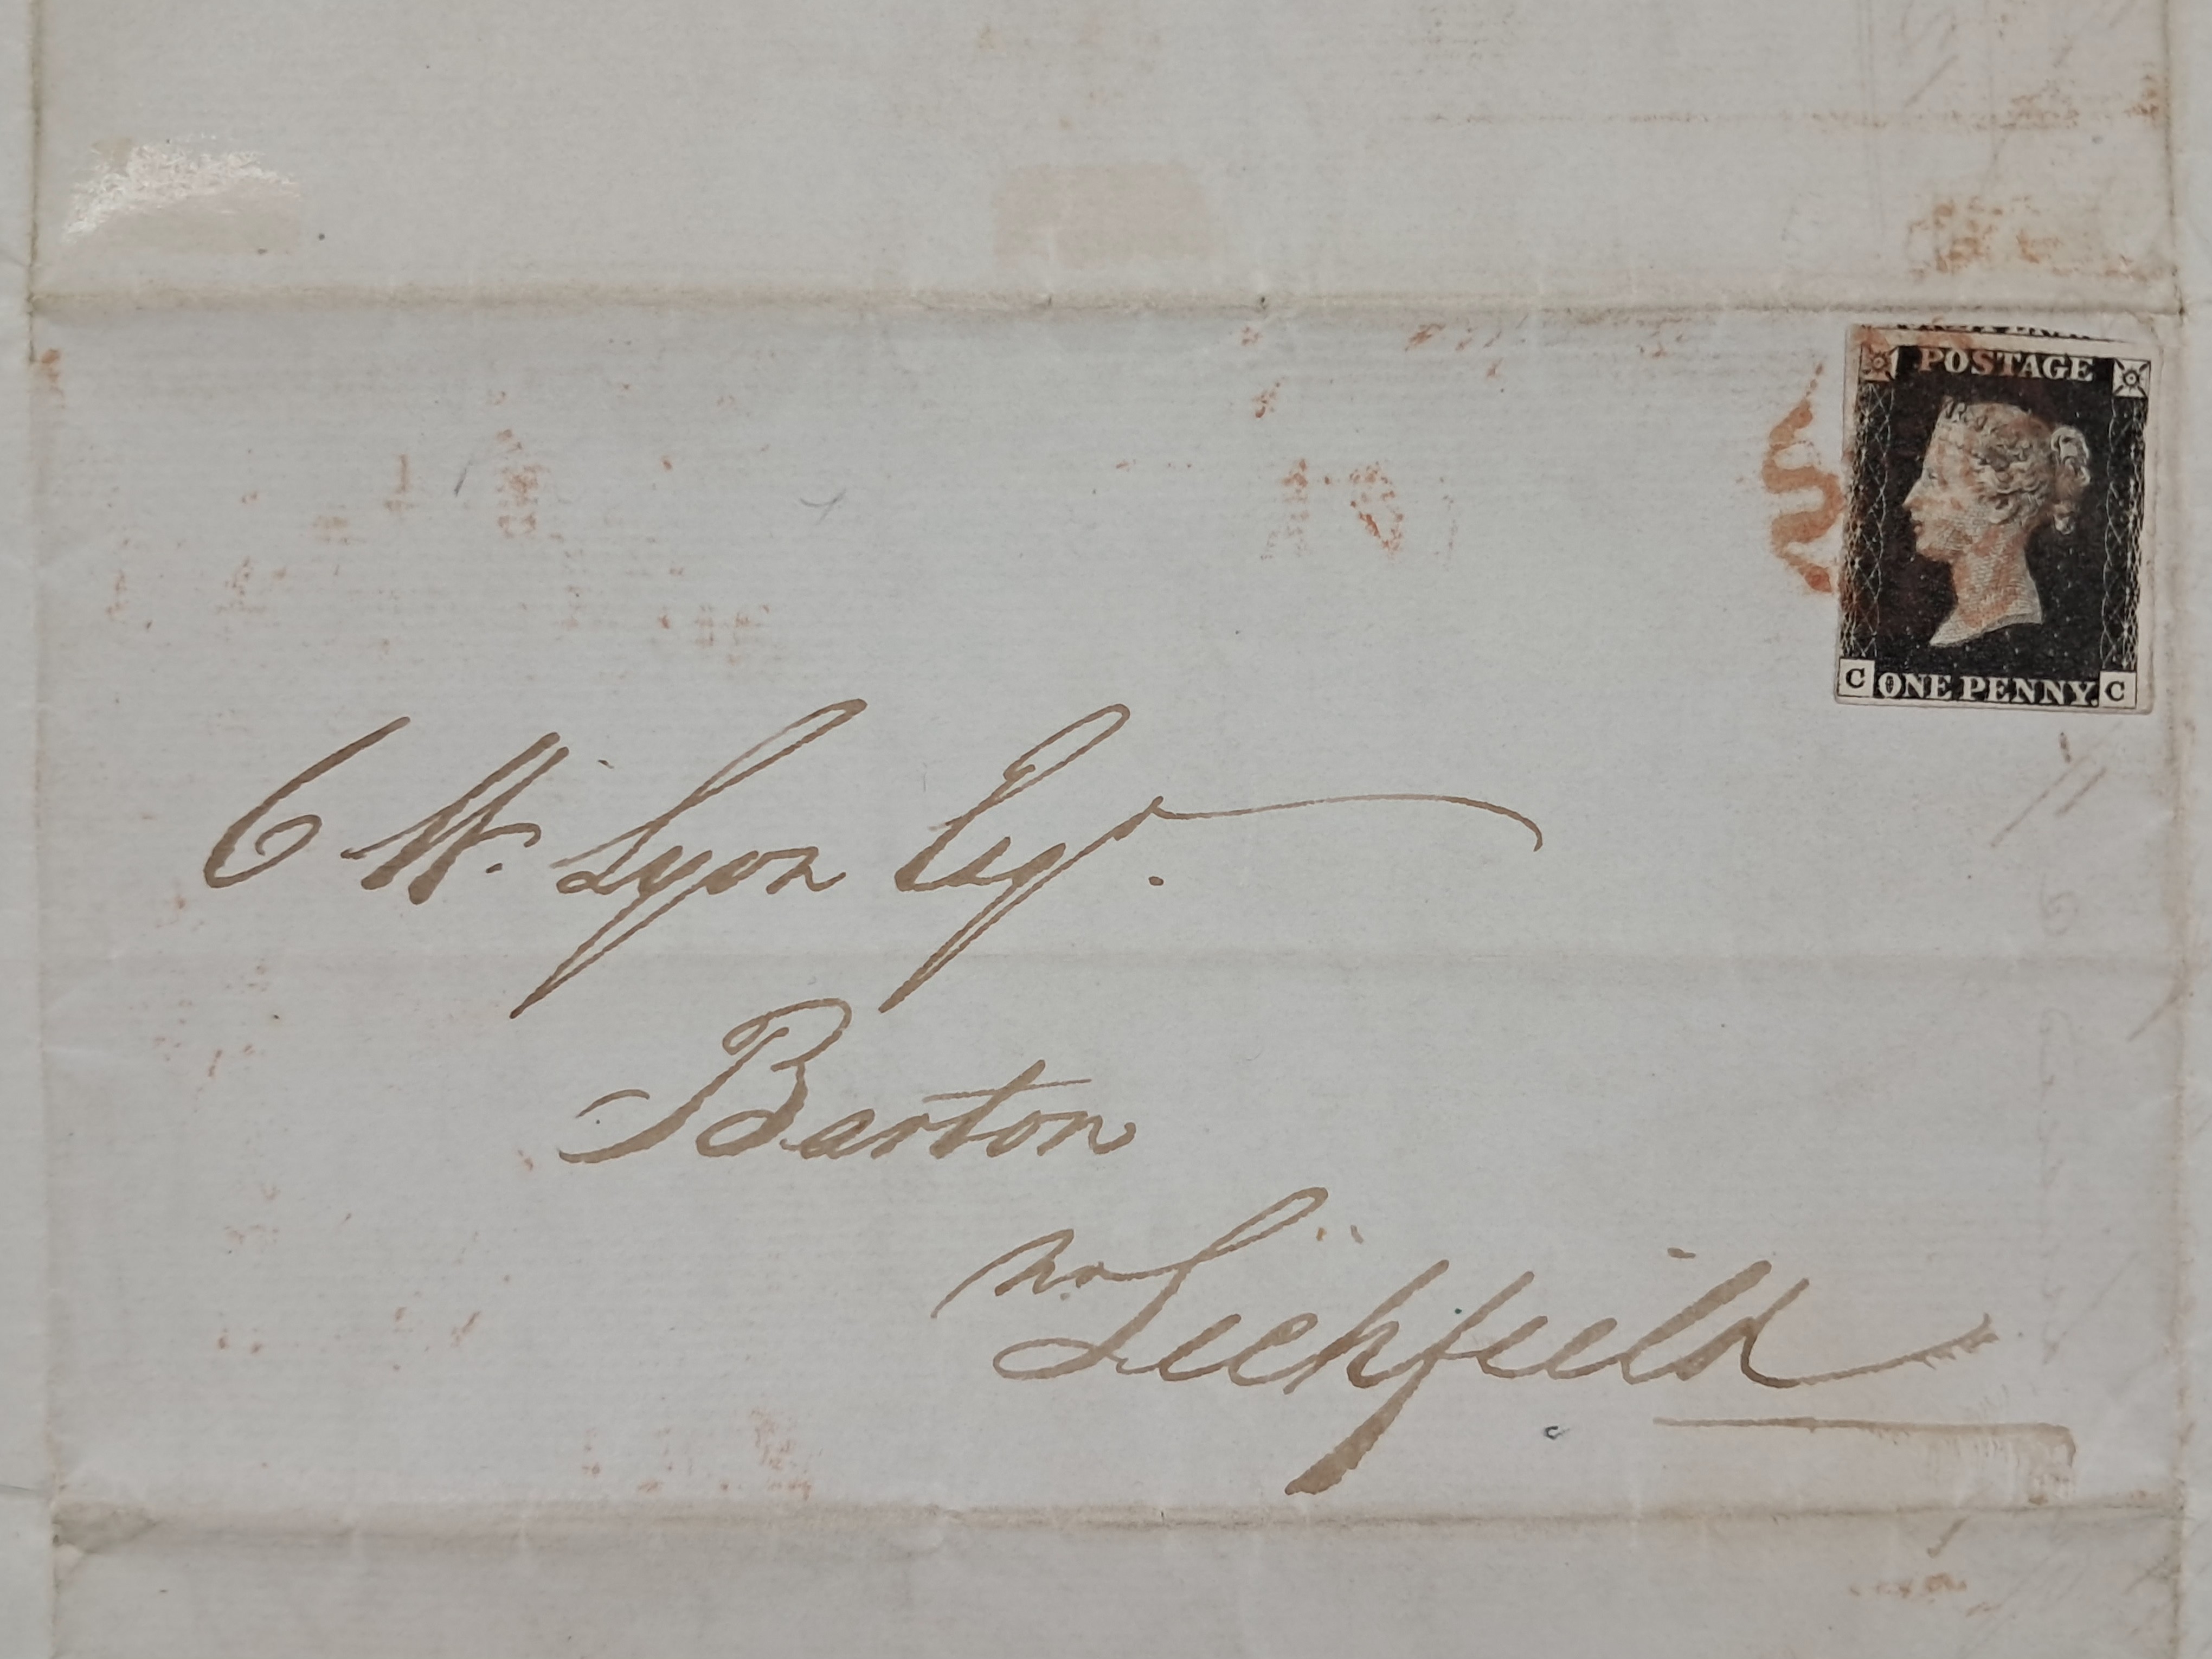 POSTAGE
C ONE PENNY. C
C W. Lyon Esqr.
Barton
nr Lichfield